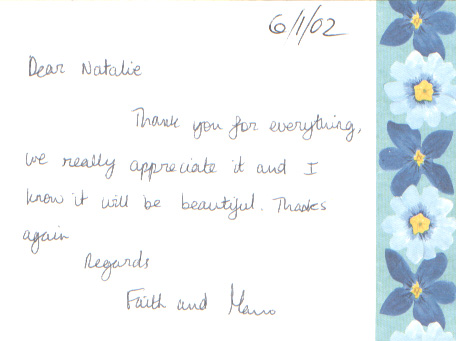 6/1/02
Dear Natalie
Thank you for everything,
we really appreciate it and I
know it will be beautiful. Thanks
again
Regards
Faith and